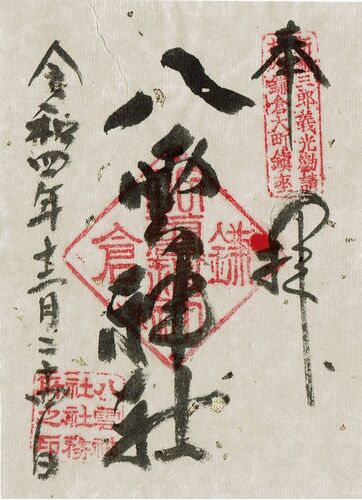 奉拝
三郎義光勧請
鎌倉大町鎮座
八雲神社
鎌倉
令和四年十二月二十日
八雲神
社社務
所之印